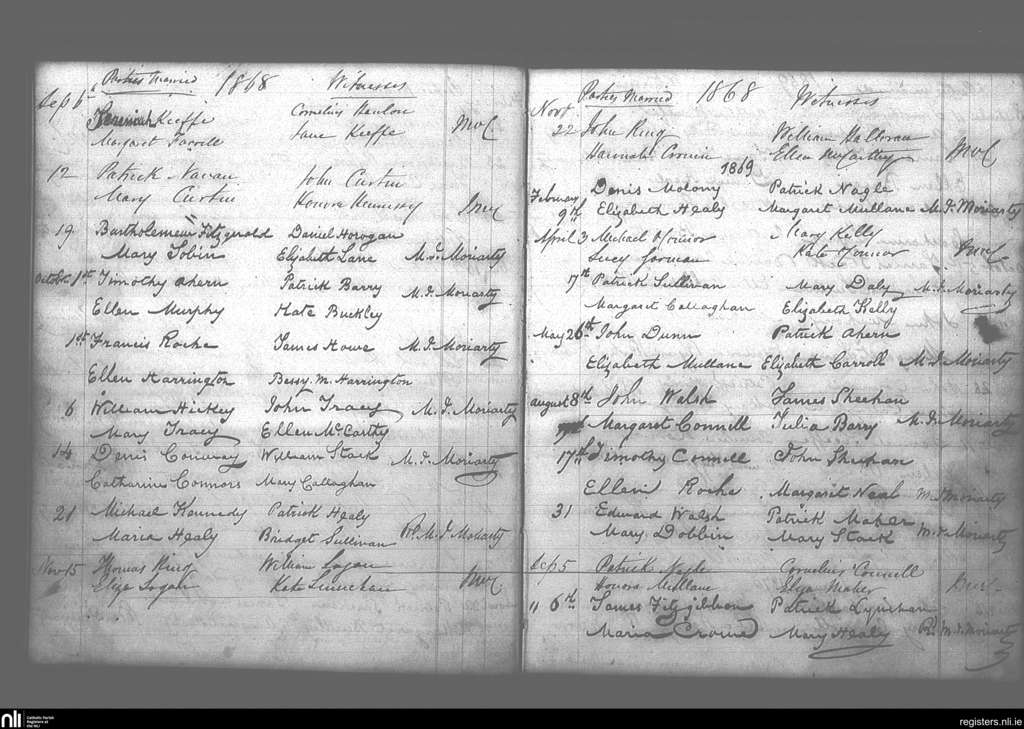 Parties Married 1868 Witnesses
Sep 6th Jeremiah Keeffe Cornelius Hanlon
Margaret Farrell Jane Keeffe
12 Patrick Navan John Curtin
Mary Curtin Honora Hennessy
19 Bartholemew Fitzgerald Daniel Horogan
Mary Tobin Elizabeth Lane M.J. Moriarty
October 1st Timothy Ahern Patrick Barry M.J. Moriarty
Ellen Murphy Kate Buckley
1st Francis Roche James Howe M.J. Moriarty
Ellen Harrington Bessy M. Harrington
6 William Hickey John Tracy M.J. Moriarty
Mary Tracy Ellen McCarthy
14 Denis Conway William Stack M.J. Moriarty
Catharine Connors Mary Callaghan
21 Michael Kennedy Patrick Healy
Maria Healy Bridget Sullivan M.J. Moriarty
Nov 15 Thomas King William Logan
Eliza Logan Kate
Parties Married 1868 Witnesses
Novr 22 John King William Halloran
Hannah Cronin Ellen McCarthy
1869
February 9th Denis Molony Patrick Nagle
Elizabeth Healy Margaret Mullane M.J. Moriarty
April 3 Michael O'Connor Mary Kelly
Lucy Gorman Kate Connor
17th Patrick Sullivan Mary Daly M.J. Moriarty
Margaret Callaghan Elizabeth Kelly
May 26th John Dunn Patrick Ahern
Elizabeth Mullane Elizabeth Carroll M.J. Moriarty
August 8th John Walsh James Sheehan
Margaret Connell Julia Barry M.J. Moriarty
17th Timothy Connell John Sheehan
Ellen Roche Margaret Neal M.J. Moriarty
31 Edward Walsh Patrick Maher
Mary Dobbin Mary Stack M.J. Moriarty
Sep 5 Patrick Nagle Cornelius Connell
Honora Mullane Eliza Maher
" 6th James Fitzgibbon Patrick Lynehan
Maria Crowe Mary Healy M.J. Moriarty
nli Catholic Parish Registers at the NLI
registers.nli.ie